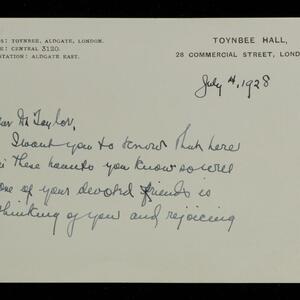 S: TOYNBEE, ALDGATE, LONDON.
E: CENTRAL 3120.
STATION: ALDGATE EAST.
TOYNBEE HALL,
28 COMMERCIAL STREET, LOND
July 4, 1928
ear Mr Taylor,
I want you to know that here
in these haunts you know so well
one of your devoted friends is
thinking of you and rejoicing